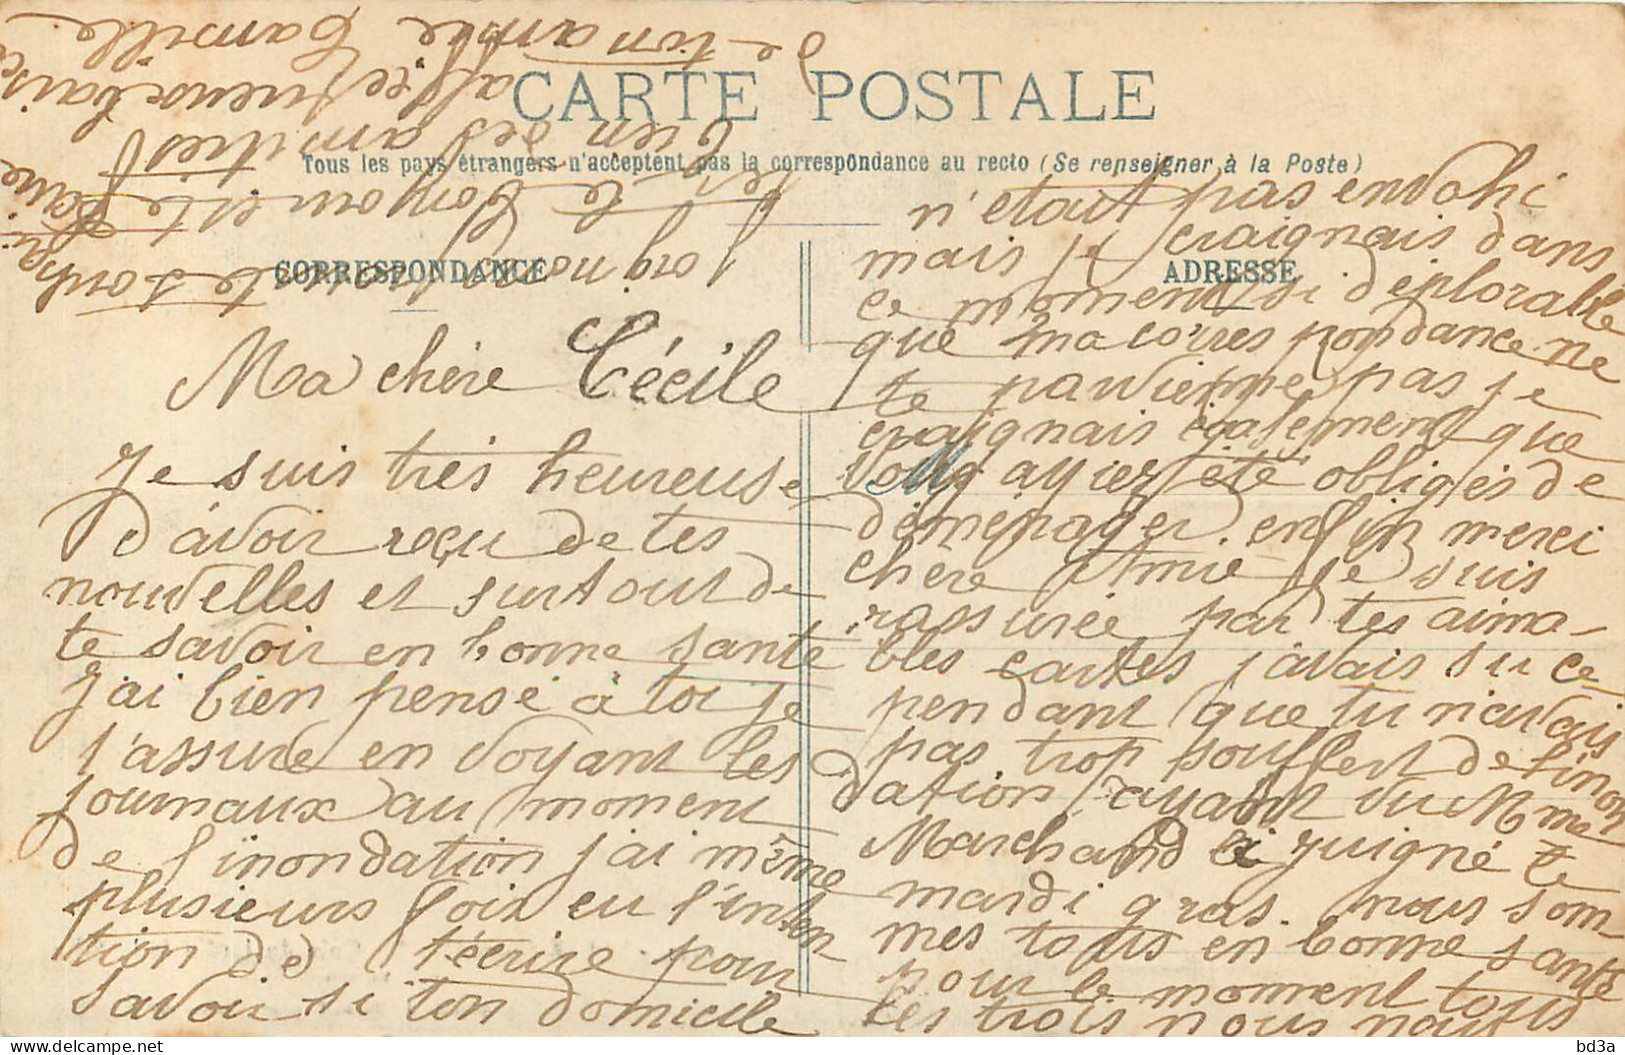 CARTE POSTALE
Tous les pays étrangers n'acceptent pas la correspondance au recto (Se renseigner à la Poste)
CORRESPONDANCE
ADRESSE
Ma chère Cécile
Je suis très heureuse
d'avoir reçu de tes
nouvelles et surtout de
te savoir en bonne santé
j'ai bien pensé à toi je
t'assure en voyant les
journaux au moment
de l'inondation j'ai même
plusieurs fois eu l'inten
tion de t'écrire pour
savoir si ton domicile
n'était pas envahi
mais je craignais dans
ce moment si déplorable
que ma correspondance ne
te parvienne pas je
craignais également que
vous ayiez été obligés de
déménager. enfin merci
chère Amie je suis
rassurée par tes aima-
bles cartes j'avais su ce
pendant que tu n'avais
pas trop souffert de l'inon
dation ayant vu Mme
Marchand à Juigné le
mardi gras. nous som
mes tous en bonne santé
pour le moment tous
les trois nous
te souhai
le bonjour et te
bien des amitiés
affectueuse
ton amie Camille